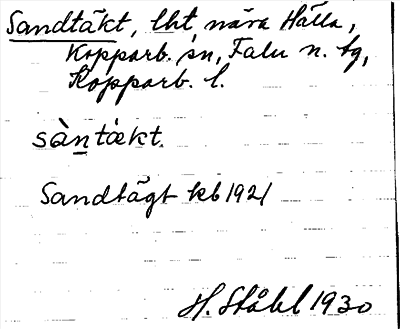 Sandtäkt, lht nära Hälla,
Kopparb. sn, Falu n. tg,
Kopparb. l.
sàntækt.
Sandtägt kb 1921
H. Ståhl 1930